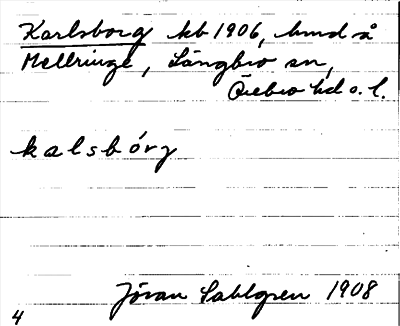 Karlsborg kb 1906, hmd å
Mellringe, Längbro sn,
Örebro hd o. l.
kalsbórg
Jöran Sahlgren 1908
4